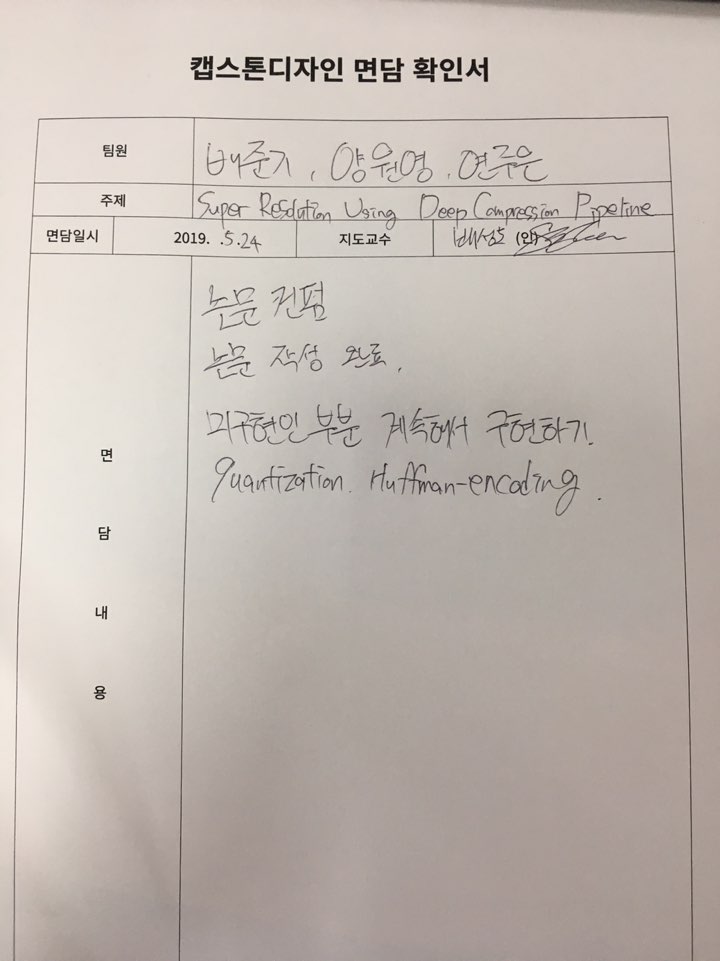 캡스톤디자인 면담 확인서
팀원 배준기, 양원영, 연주은
주제 Super Resolution Using Deep Compression Pipeline
면담일시 2019. 5.24 지도교수 배성호 (인)
논문 컨펌
논문 작성 완료.
미구현인 부분 계속해서 구현하기.
quantization. Huffman-encoding.
면
담
내
용